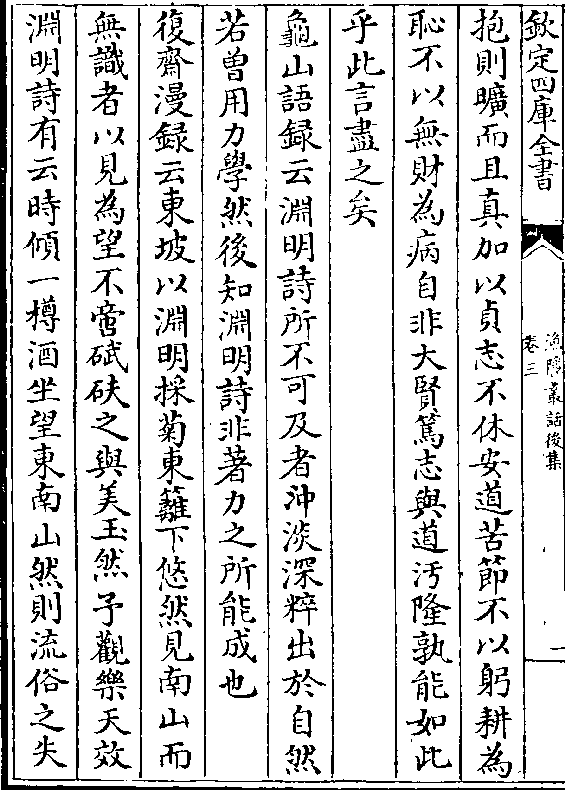 欽定四庫全書
漁隱叢話後集
卷三
一
抱則曠而且真加以貞志不休安道苦節不以躬耕為
恥不以無財為病自非大賢篤志與道汚隆孰能如此
乎此言盡之矣
龜山語録云淵明詩所不可及者沖淡深粹出於自然
若曽用力學然後知淵明詩非著力之所能成也
復齋漫録云東坡以淵明採菊東籬下悠然見南山而
無識者以見為望不啻碔砆之與美玉然予觀樂天效
淵明詩有云時傾一樽酒坐望東南山然則流俗之失